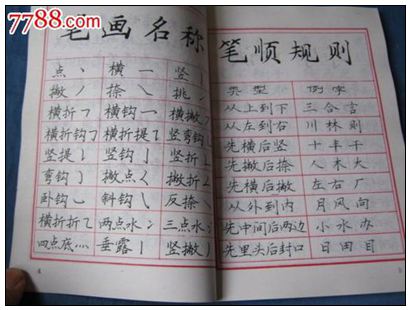 7788.com
笔画名称
点丶 横一 竖丨
撇丿 捺㇏ 挑㇀
横折𠃍 横钩乛 横撇㇇
横折钩𠃌 横折提㇊ 竖弯钩乚
竖提𠄌 竖钩亅 竖折𠃊
弯钩㇁ 撇点𡿨 撇折𠃋
卧钩㇃ 斜钩㇂ 反捺
横折折 两点水冫 三点水氵
四点底灬 垂露丨 竖撇丿
4
笔顺规则
类型 例字
从上到下 三合言
从左到右 川林则
先横后竖 十丰干
先撇后捺 人木大
先横后撇 左右厂
从外到内 月风向
先中间后两边 小水办
先里头后封口 日田目